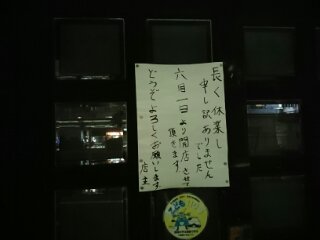 長く休業し
申し訳ありません
でした
六月一日より開店させて
頂きます
どうぞよろしくお願いします
店主